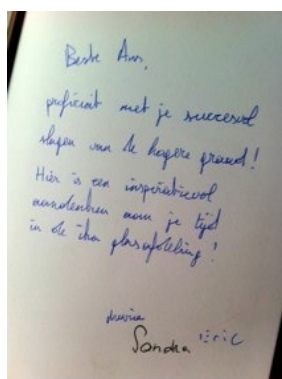 Beste An,
proficiat met je succesvol
slagen van de hogere graad!
Hier is een inspiratievol
aandenken aan je tijd
in de
Sandra Eric